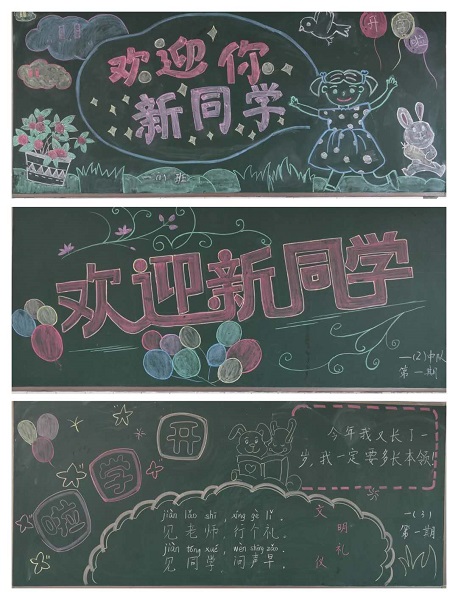 欢迎你
新同学
一(1)班
欢迎新同学
一(2)中队
第一期
开
学
啦
今年我又长了一
岁,我一定要多长本领!
jiàn lǎo shī xíng gè lǐ
见老师,行个礼。
jiàn tóng xué wèn shēng zǎo
见同学,问声早。
文
明
礼
仪
一(3)
第一期